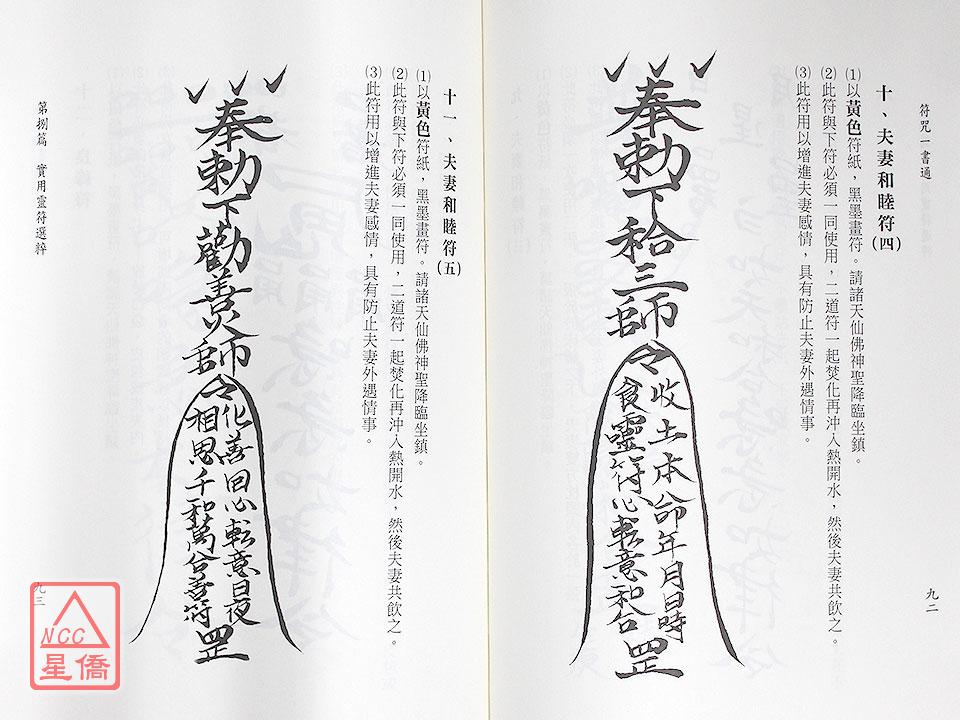 符咒一書通
十、夫妻和睦符(四)
⑴以黃色符紙，黑墨畫符。請諸天仙佛神聖降臨坐鎮。
⑵此符與下符必須一同使用，二道符一起焚化再沖入熱開水，然後夫妻共飲之。
⑶此符用以增進夫妻感情，具有防止夫妻外遇情事。
奉勅下和合三師
收土本命年月日時
食靈符心転意和合
罡
九二
十一、夫妻和睦符(五)
⑴以黃色符紙，黑墨畫符。請諸天仙佛神聖降臨坐鎮。
⑵此符與下符必須一同使用，二道符一起焚化再沖入熱開水，然後夫妻共飲之。
⑶此符用以增進夫妻感情，具有防止夫妻外遇情事。
奉勅下勸善大師
化善回心転意日夜
相思千和萬合善符
罡
第捌篇 實用靈符選粹
九三
NCC
星僑